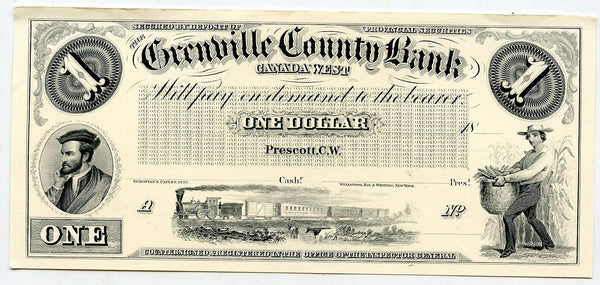 SECURED BY DEPOSIT OF PROVINCIAL SECURITIES
1 THE Grenville County Bank 1
CANADA WEST
Will pay on demand to the bearer.
ONE DOLLAR 18
Prescott, C.W.
Cashr. Presr.
WELLSTOOD, HAY & WHITING, NEW YORK.
A No
ONE
COUNTERSIGNED & REGISTERED IN THE OFFICE OF THE INSPECTOR GENERAL